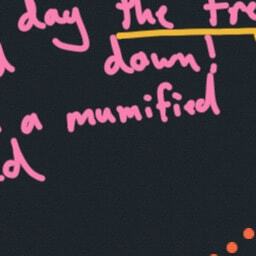 day the tre
down!
a mumified